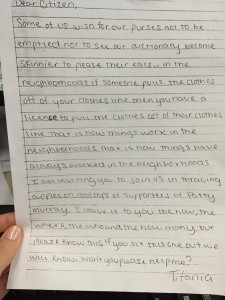 Dear Citizen,
Some of us wish for our purses not to be
emptied nor to see our dictionary become
skinnier to please their ears.. in the
neighborhoods if someone pulls the clothes
off of your clothes line then you have a
license to pull the clothes off of their clothes
line that is how things work in the
neighborhoods that is how things have
always worked in the neighborhoods
I am inviting you to join us in throwing
apples on rooftops of supporters of Patty
Murray. I leave it to you the how, the
where, the who and the how many, but
please know this if you sit this one out we
will know. Won't you please help me?
Titania